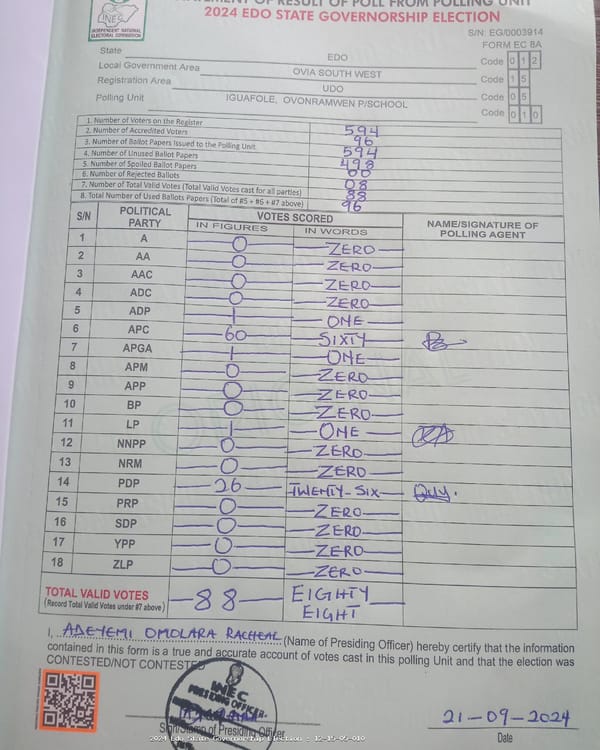 STATEMENT OF RESULT OF POLL FROM POLLING UNIT
2024 EDO STATE GOVERNORSHIP ELECTION
INEC
INDEPENDENT NATIONAL
ELECTORAL COMMISSION
S/N: EG/0003914
FORM EC 8A
State EDO Code 0 1 2
Local Government Area OVIA SOUTH WEST Code 1 5
Registration Area UDO Code 0 5
Polling Unit IGUAFOLE, OVONRAMWEN P/SCHOOL Code 0 1 0
1. Number of Voters on the Register 594
2. Number of Accredited Voters 96
3. Number of Ballot Papers Issued to the Polling Unit 594
4. Number of Unused Ballot Papers 498
5. Number of Spoiled Ballot Papers 00
6. Number of Rejected Ballots 08
7. Number of Total Valid Votes (Total Valid Votes cast for all parties) 88
8. Total Number of Used Ballots Papers (Total of #5 + #6 + #7 above) 96
S/N POLITICAL PARTY VOTES SCORED NAME/SIGNATURE OF POLLING AGENT
IN FIGURES IN WORDS
1 A 0 ZERO
2 AA 0 ZERO
3 AAC 0 ZERO
4 ADC 0 ZERO
5 ADP 1 ONE
6 APC 60 SIXTY
7 APGA 1 ONE
8 APM 0 ZERO
9 APP 0 ZERO
10 BP 0 ZERO
11 LP 1 ONE
12 NNPP 0 ZERO
13 NRM 0 ZERO
14 PDP 26 TWENTY-SIX
15 PRP 0 ZERO
16 SDP 0 ZERO
17 YPP 0 ZERO
18 ZLP 0 ZERO
TOTAL VALID VOTES 88 EIGHTY EIGHT
(Record Total Valid Votes under #7 above)
I, ADEYEMI OMOLARA RACHEAL (Name of Presiding Officer) hereby certify that the information
contained in this form is a true and accurate account of votes cast in this polling Unit and that the election was
CONTESTED/NOT CONTESTED
INEC
PRESIDING OFFICER
Sign/Stamp of Presiding Officer
21-09-2024
Date
2024 Edo State Governorship Election - 12-15-05-010